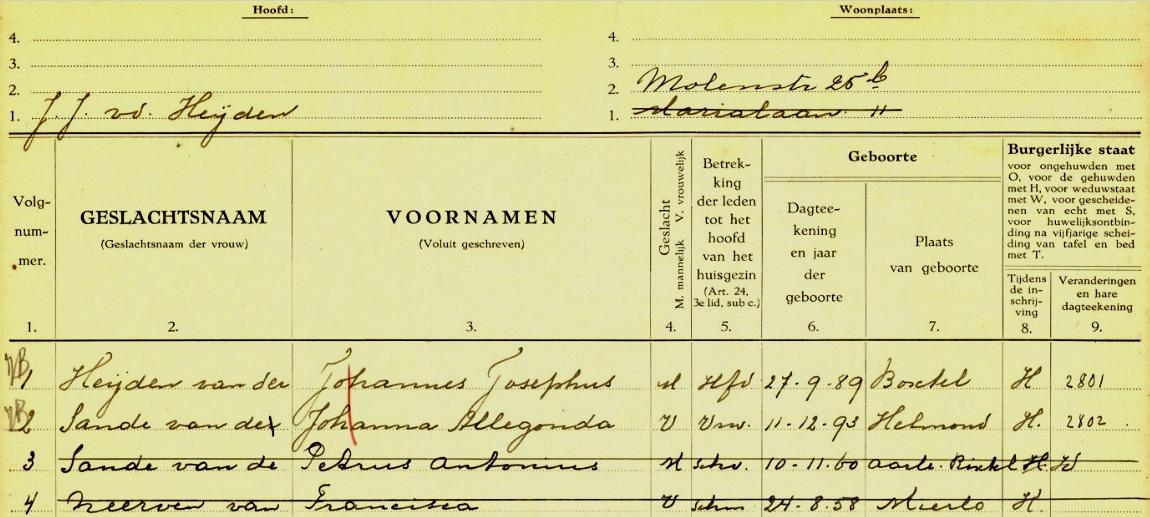 Hoofd:
Woonplaats:
4.
3.
2.
1. J. J. vd. Heijden
4.
3.
2. Molenstr 25 b
1. Marialaan 11
Volg-
num-
mer.
1.
GESLACHTSNAAM
(Geslachtsnaam der vrouw)
2.
VOORNAMEN
(Voluit geschreven)
3.
Geslacht
M. mannelijk V. vrouwelijk
4.
Betrek-
king
der leden
tot het
hoofd
van het
huisgezin
(Art. 24,
3e lid, sub c.)
5.
Geboorte
Dagtee-
kening
en jaar
der
geboorte
6.
Plaats
van geboorte
7.
Burgerlijke staat
voor ongehuwden met
O, voor de gehuwden
met H, voor weduwstaat
met W, voor gescheide-
nen van echt met S,
voor huwelijksontbin-
ding na vijfjarige schei-
ding van tafel en bed
met T.
Tijdens
de in-
schrij-
ving
8.
Veranderingen
en hare
dagteekening
9.
1 Heijden van der Johannes Josephus M Hfd 27-9-89 Boxtel H 2801
2 Sande van de Johanna Allegonda V Vrw. 11-12-93 Helmond H. 2802
3 Sande van de Petrus Antonius M schv. 10-11-60 Aarle-Rixtel H. W
4 Neerven van Francisca V schm 24-8-58 Mierlo H.